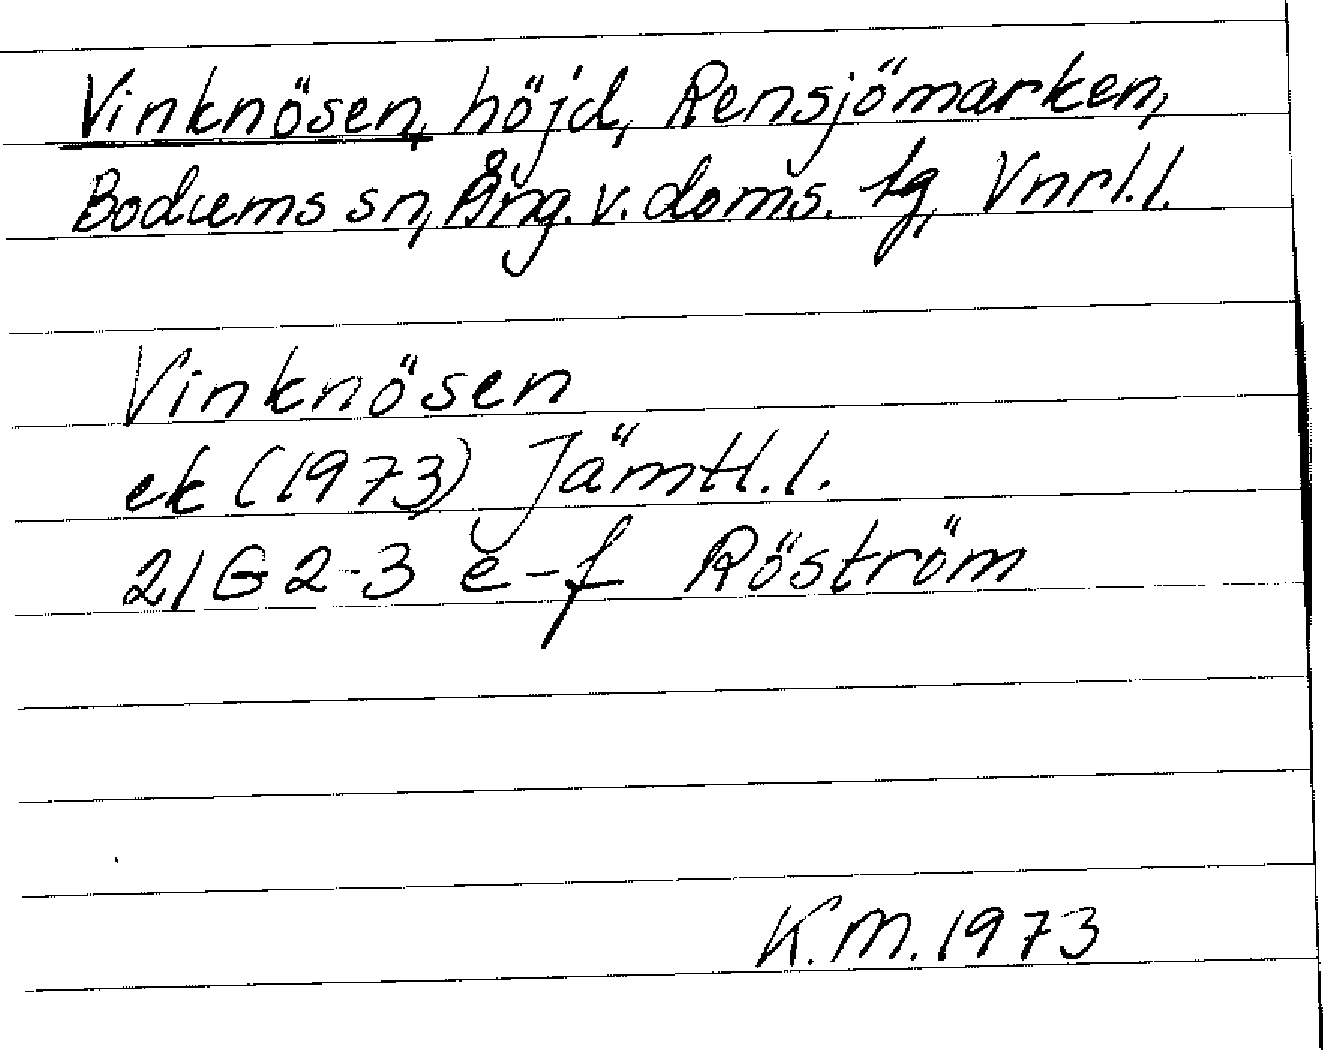 Vinknösen, höjd, Rensjömarken,
Bodums sn, Ång. v. doms. tg, Vnrl.l.
Vinknösen
ek (1973) Jämtl.l.
21G 2-3 e-f Röström
K.M. 1973